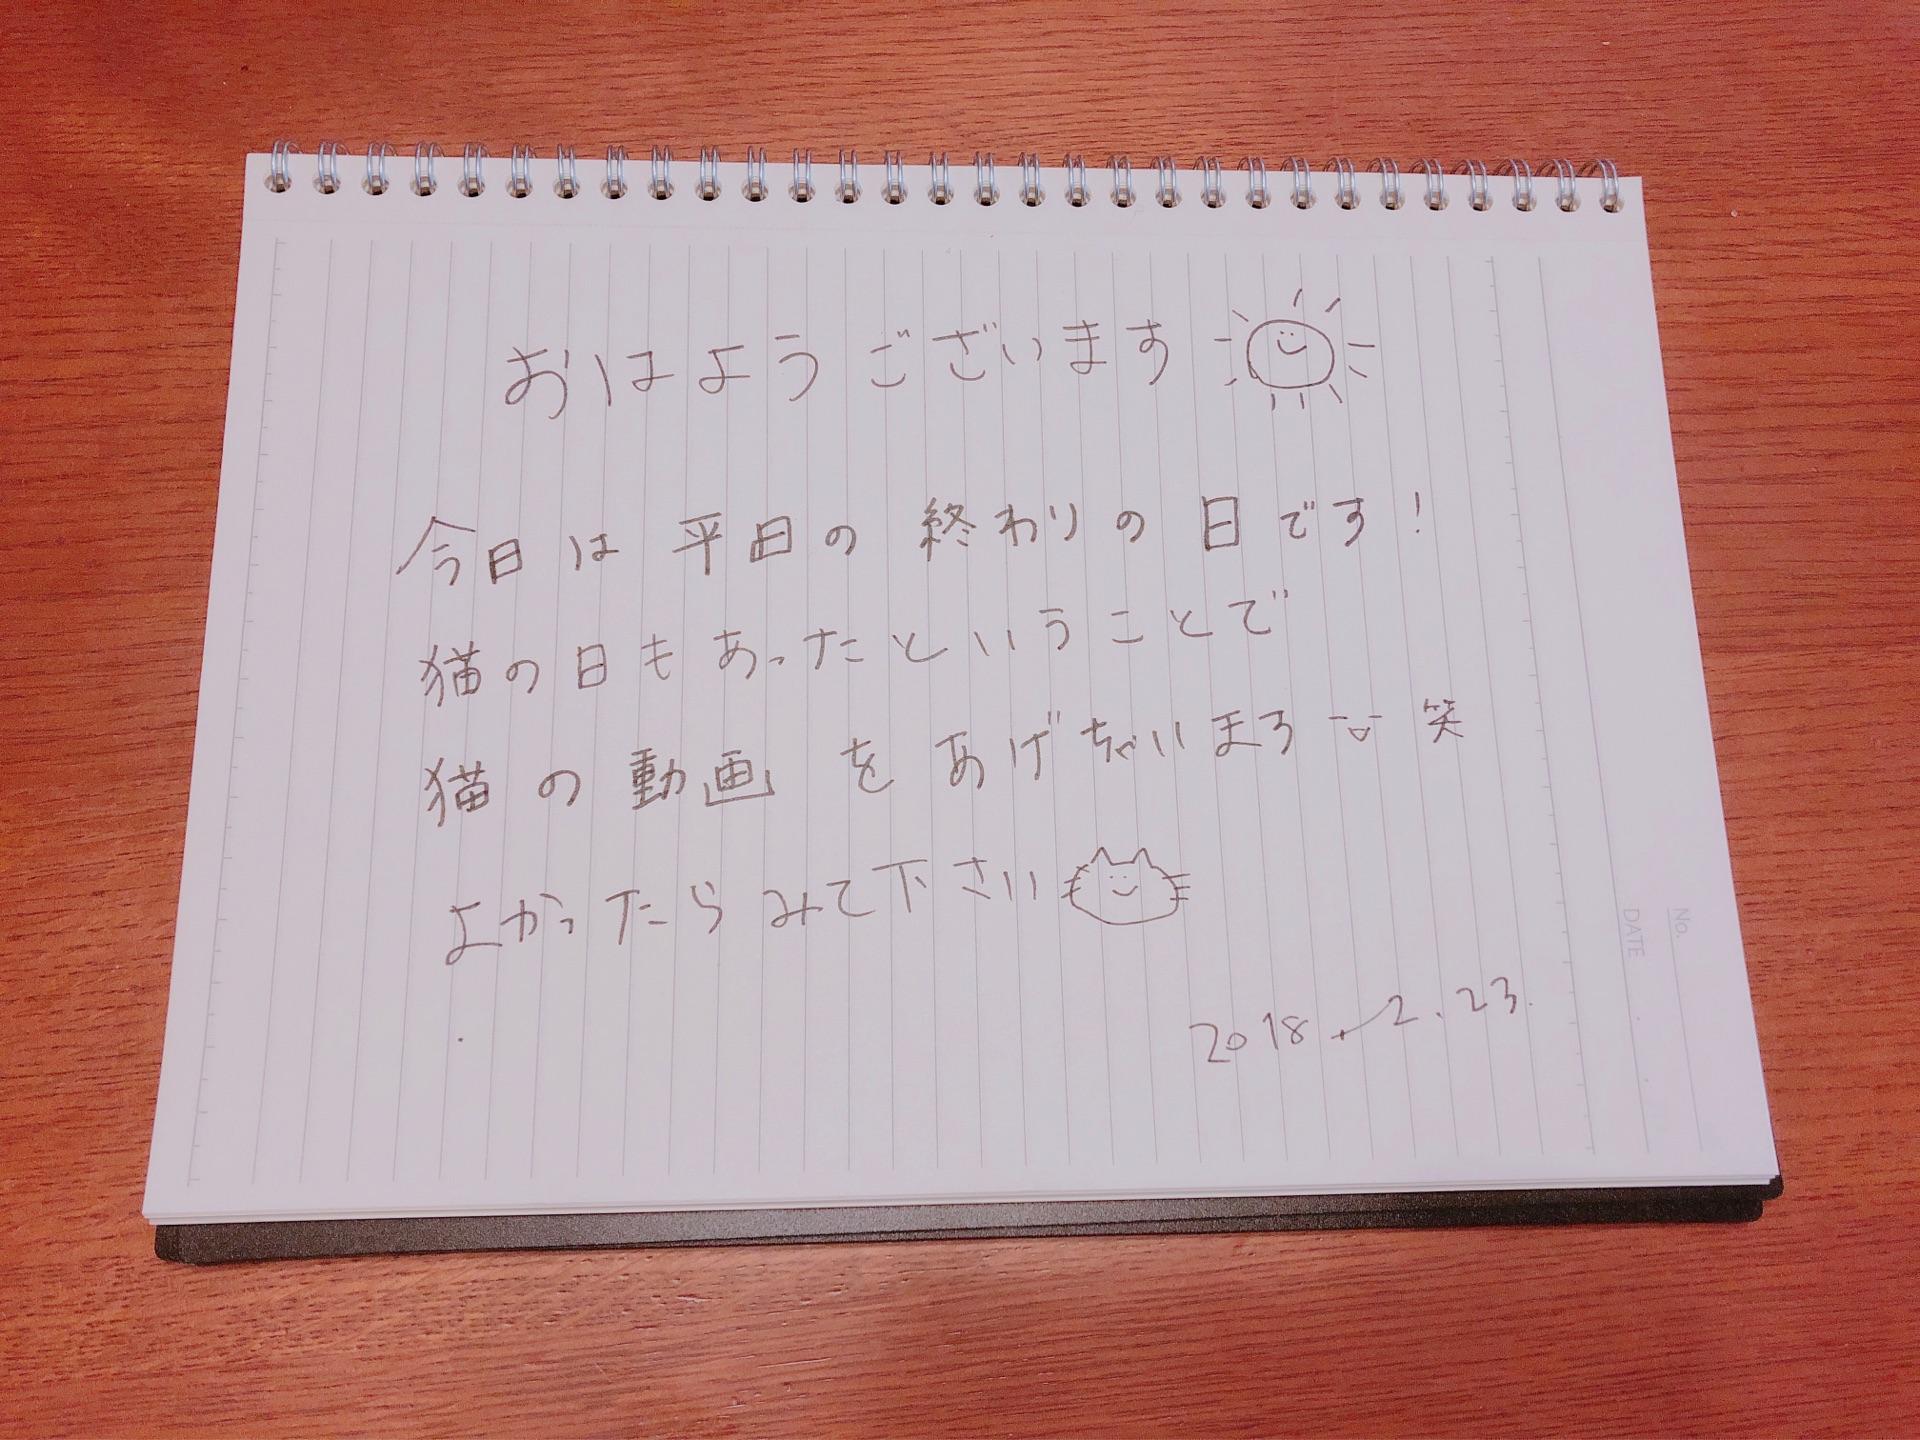 おはようございます
今日は平日の終わりの日です!
猫の日もあったということで
猫の動画をあげちゃいまろ 笑
よかったらみて下さい
2018.2.23.
No.
DATE